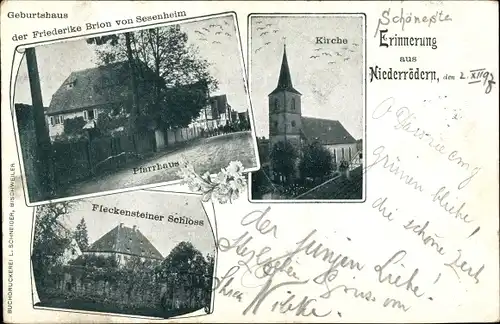 Geburtshaus
der Friederike Brion von Sesenheim
Pfarrhaus
Kirche
Fleckensteiner Schloss
BUCHDRUCKEREI L. SCHNEIDER, BISCHWEILER
Schönste
Erinnerung
aus
Niederrödern, den 2. XII 97
O
grünen bliebe!
die schöne Zeit
der jungen Liebe!
Gruss vom